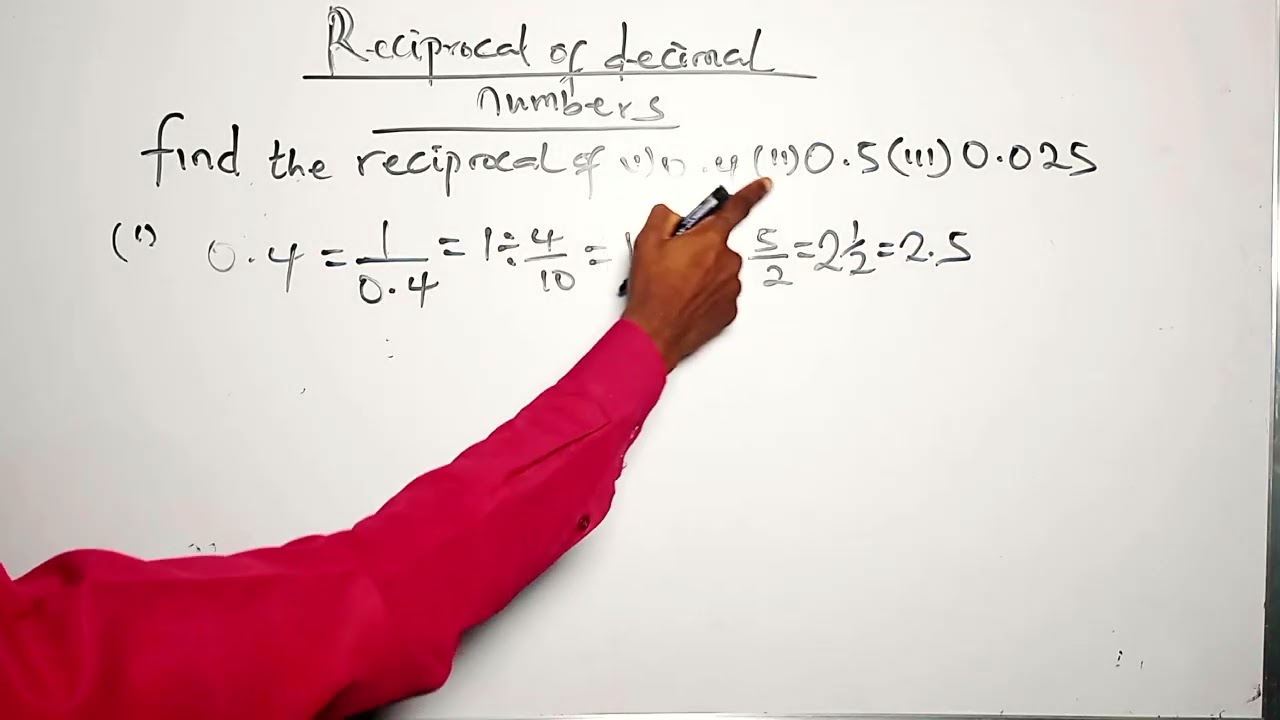 Reciprocal of decimal
numbers
find the reciprocal of (i) 0.4 (ii) 0.5 (iii) 0.025
(i) 0.4 = 1/0.4 = 1 ÷ 4/10 = 5/2 = 2 1/2 = 2.5